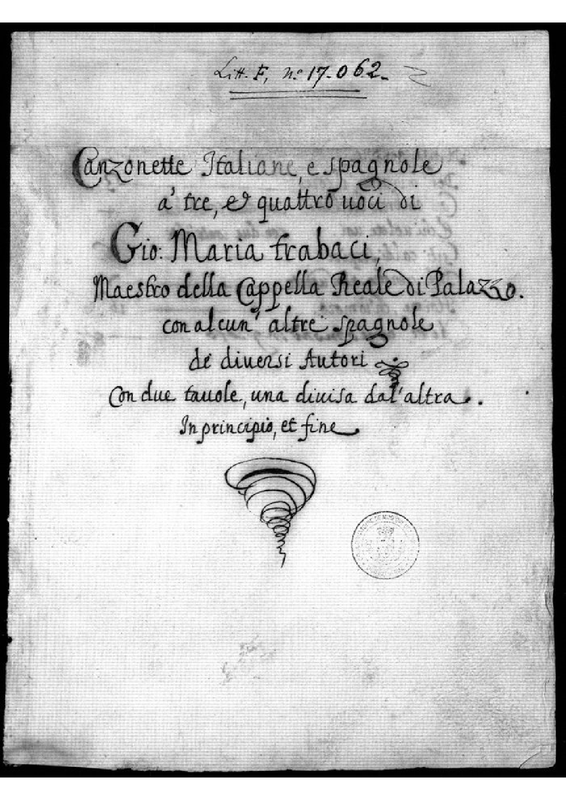 Litt. F, nº 17-062.
Canzonette Italiane, e spagnole
a' tre, et quattro uoci di
Gio: Maria trabaci,
Maestro della Cappella Reale di Palazzo.
con alcun' altre spagnole
de diuersi Autori
Con due tauole, una diuisa dal'altra.
In principio, et fine